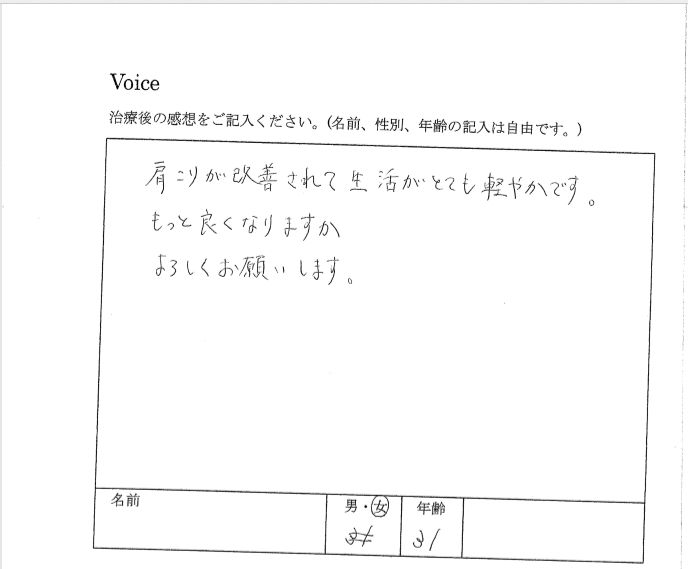 Voice
治療後の感想をご記入ください。(名前、性別、年齢の記入は自由です。)
肩こりが改善されて生活がとても軽やかです。
もっと良くなりますか
よろしくお願いします。
名前
男・女
年齢
31